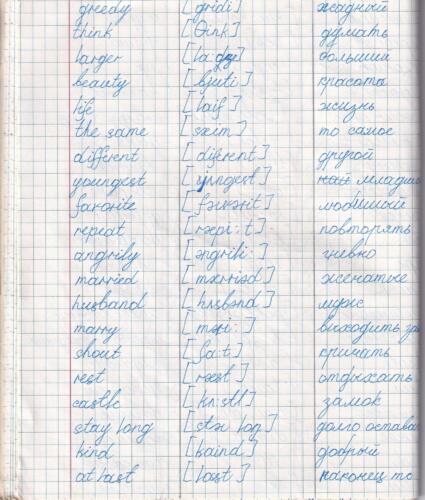 greedy [gridi] жадный
think [θink] думать
larger [la:dʒə] больший
beauty [bjuti] красота
life [laif] жизнь
the same [seim] то самое
different [diferent] другой
youngest [yʌngest] младши
favorite [fəvərit] любимый
repeat [rəpi:t] повторять
angrily [əngrili:] гневно
married [mærriəd] женатые
husband [hʌsbənd] муж
marry [məri:] виходить за
shout [ʃa:t] кричать
rest [rəst] отдыхать
castle [kʌ:stl] замок
stay long [stə loŋ] долго остава
kind [kaind] добрый
at last [last] наконец то